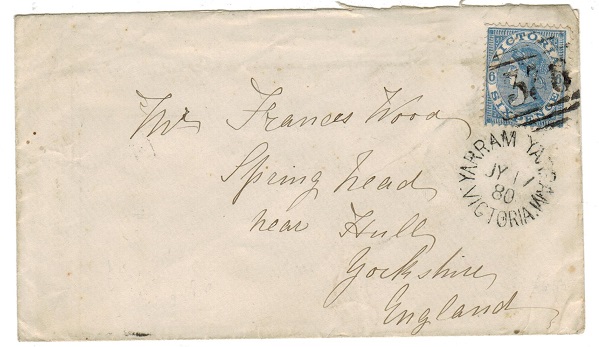 VICTORIA
6
SIXPENCE
Mrs Frances Wood
Spring head
near Hull
Yorkshire
England
YARRAM YARRAM
JY 17
80
VICTORIA